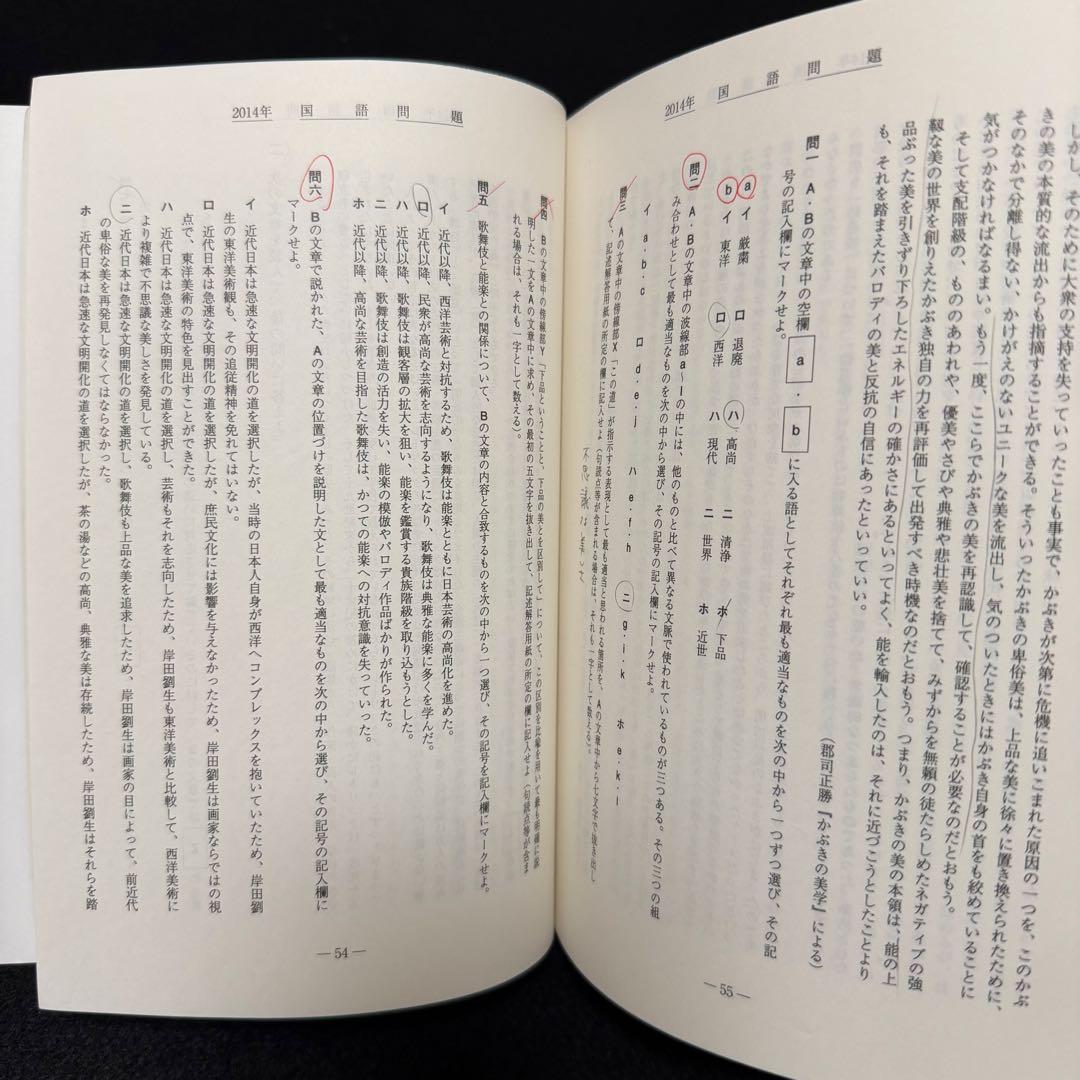 2014年 国語問題
しかし、そのために大衆の支持を失っていったことも事実で、かぶきが次第に危機に追いこまれた原因の一つを、このかぶ
きの美の本質的な流出からも指摘することができる。そういったかぶきの卑俗美は、上品な美に徐々に置き換えられたために、
そのなかで分離し得ない、かけがえのないユニークな美を流出し、気のついたときにはかぶき自身の首を絞めていることに
気がつかなければなるまい。もう一度、ここらでかぶきの美を再認識して、確認することが必要なのだとおもう。
そして支配階級の、もののあわれや、優美やさびや典雅や悲壮美を捨てて、みずからを無頼の徒たらしめたネガティブの強
靱な美の世界を創りえたかぶき独自の力を再評価して出発すべき時機なのだとおもう。つまり、かぶきの美の本領は、能の上
品ぶった美を引きずり下ろしたエネルギーの確かさにあるといってよく、能を輸入したのは、それに近づこうとしたことより
も、それを踏まえたパロディの美と反抗の自信にあったといっていい。
(郡司正勝『かぶきの美学』による)
問一 A・Bの文章中の空欄 a ・ b に入る語としてそれぞれ最も適当なものを次の中から一つずつ選び、その記
号の記入欄にマークせよ。
a イ 厳粛 ロ 退廃 ハ 高尚 ニ 清浄 ホ 下品
b イ 東洋 ロ 西洋 ハ 現代 ニ 世界 ホ 近世
問二 A・Bの文章中の波線部a〜lの中には、他のものと比べて異なる文脈で使われているものが三つある。その三つの組
み合わせとして最も適当なものを次の中から選び、その記号の記入欄にマークせよ。
イ a・b・c ロ d・e・j ハ e・f・h ニ g・i・k ホ e・k・l
問三 Aの文章中の傍線部X「この道」が指示する表現として最も適当と思われる箇所を、Aの文章中から七文字で抜き出し
て、記述解答用紙の所定の欄に記入せよ(句読点等が含まれる場合は、それも一字として数える)。
2014年 国語問題
問四 Bの文章中の傍線部Y「下品ということと、下品の美とを区別して」について、この区別を比喩を用いて最も明確に説
明した一文をAの文章中に求め、その最初の五文字を抜き出して、記述解答用紙の所定の欄に記入せよ(句読点等が含ま
れる場合は、それも一字として数える)。
問五 歌舞伎と能楽との関係について、Bの文章の内容と合致するものを次の中から一つ選び、その記号を記入欄にマークせよ。
イ 近代以降、西洋芸術と対抗するため、歌舞伎は能楽とともに日本芸術の高尚化を進めた。
ロ 近代以降、民衆が高尚な芸術を志向するようになり、歌舞伎は典雅な能楽に多くを学んだ。
ハ 近代以降、歌舞伎は観客層の拡大を狙い、能楽を鑑賞する貴族階級を取り込もうとした。
ニ 近代以降、歌舞伎は創造の活力を失い、能楽の模倣やパロディ作品ばかりが作られた。
ホ 近代以降、高尚な芸術を目指した歌舞伎は、かつての能楽への対抗意識を失っていった。
問六 Bの文章で説かれた、Aの文章の位置づけを説明した文として最も適当なものを次の中から選び、その記号の記入欄に
マークせよ。
イ 近代日本は急速な文明開化の道を選択したが、当時の日本人自身が西洋へコンプレックスを抱いていたため、岸田劉
生の東洋美術観も、その追従精神を免れてはいない。
ロ 近代日本は急速な文明開化の道を選択したが、庶民文化には影響を与えなかったため、岸田劉生は画家ならではの視
点で、東洋美術の特色を見出すことができた。
ハ 近代日本は急速な文明開化の道を選択し、芸術もそれを志向したため、岸田劉生も東洋美術と比較して、西洋美術に
より複雑で不思議な美しさを発見している。
ニ 近代日本は急速な文明開化の道を選択し、歌舞伎も上品な美を追求したため、岸田劉生は画家の目によって、前近代
の卑俗な美を再発見しなくてはならなかった。
ホ 近代日本は急速な文明開化の道を選択したが、茶の湯などの高尚、典雅な美は存続したため、岸田劉生はそれらを踏
— 54 —
— 55 —